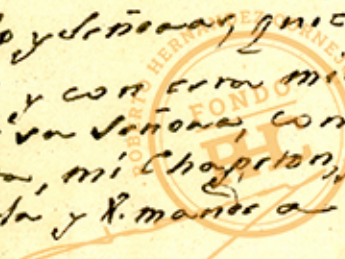 o y Señoras, quie
y con esta mi
esa Señora, com
a, mi Chapeton,
da y R. mande a
ROBERTO HERNANDEZ CORNEJ
FONDO
RHC